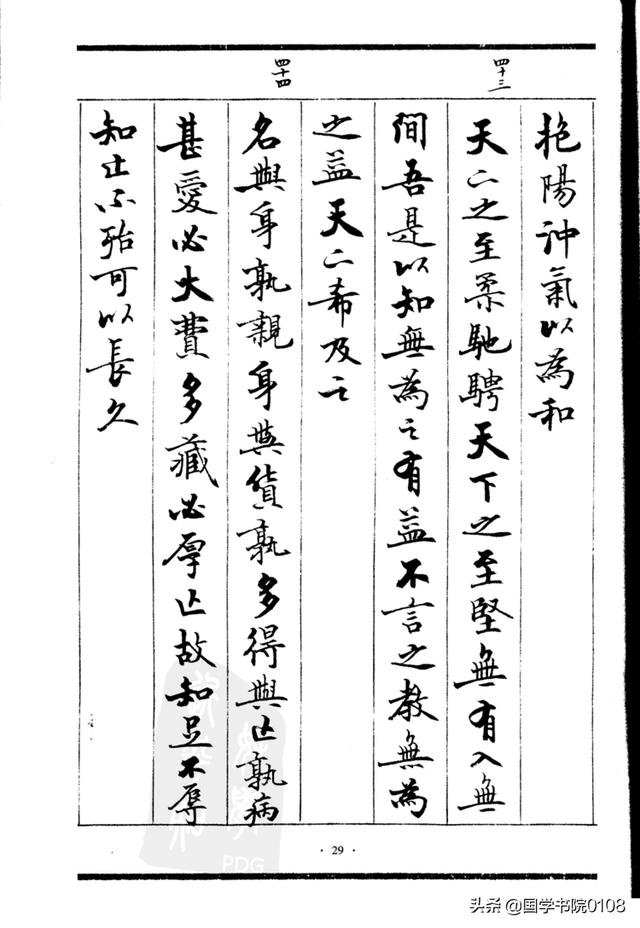 四十三
四十四
抱陽沖氣以為和
天二之至柔馳騁天下之至堅無有入無
間吾是以知無為之有益不言之教無為
之益天二希及之
名與身孰親身與貨孰多得與亡孰病
甚愛必大費多藏必厚亡故知足不辱
知止不殆可以長久
· 29 ·
PDG
头条 @国学书院0108